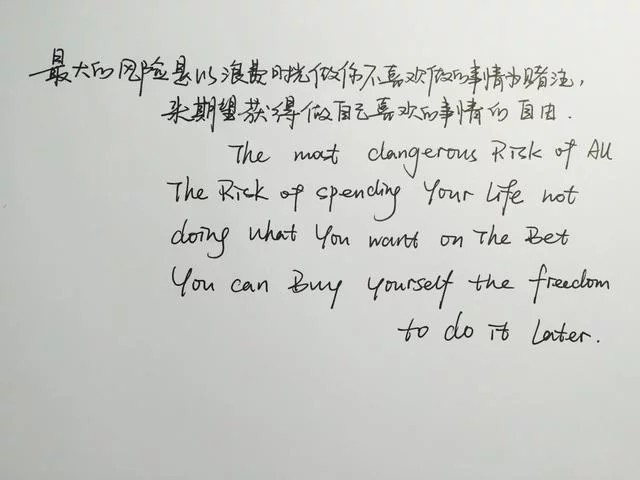 最大的风险是以浪费时光做你不喜欢做的事情为赌注,
来期望获得做自己喜欢的事情的自由.
The most dangerous Risk of All
The Risk of spending Your Life not
doing what You want on The Bet
You can Buy yourself the freedom
to do it Later.